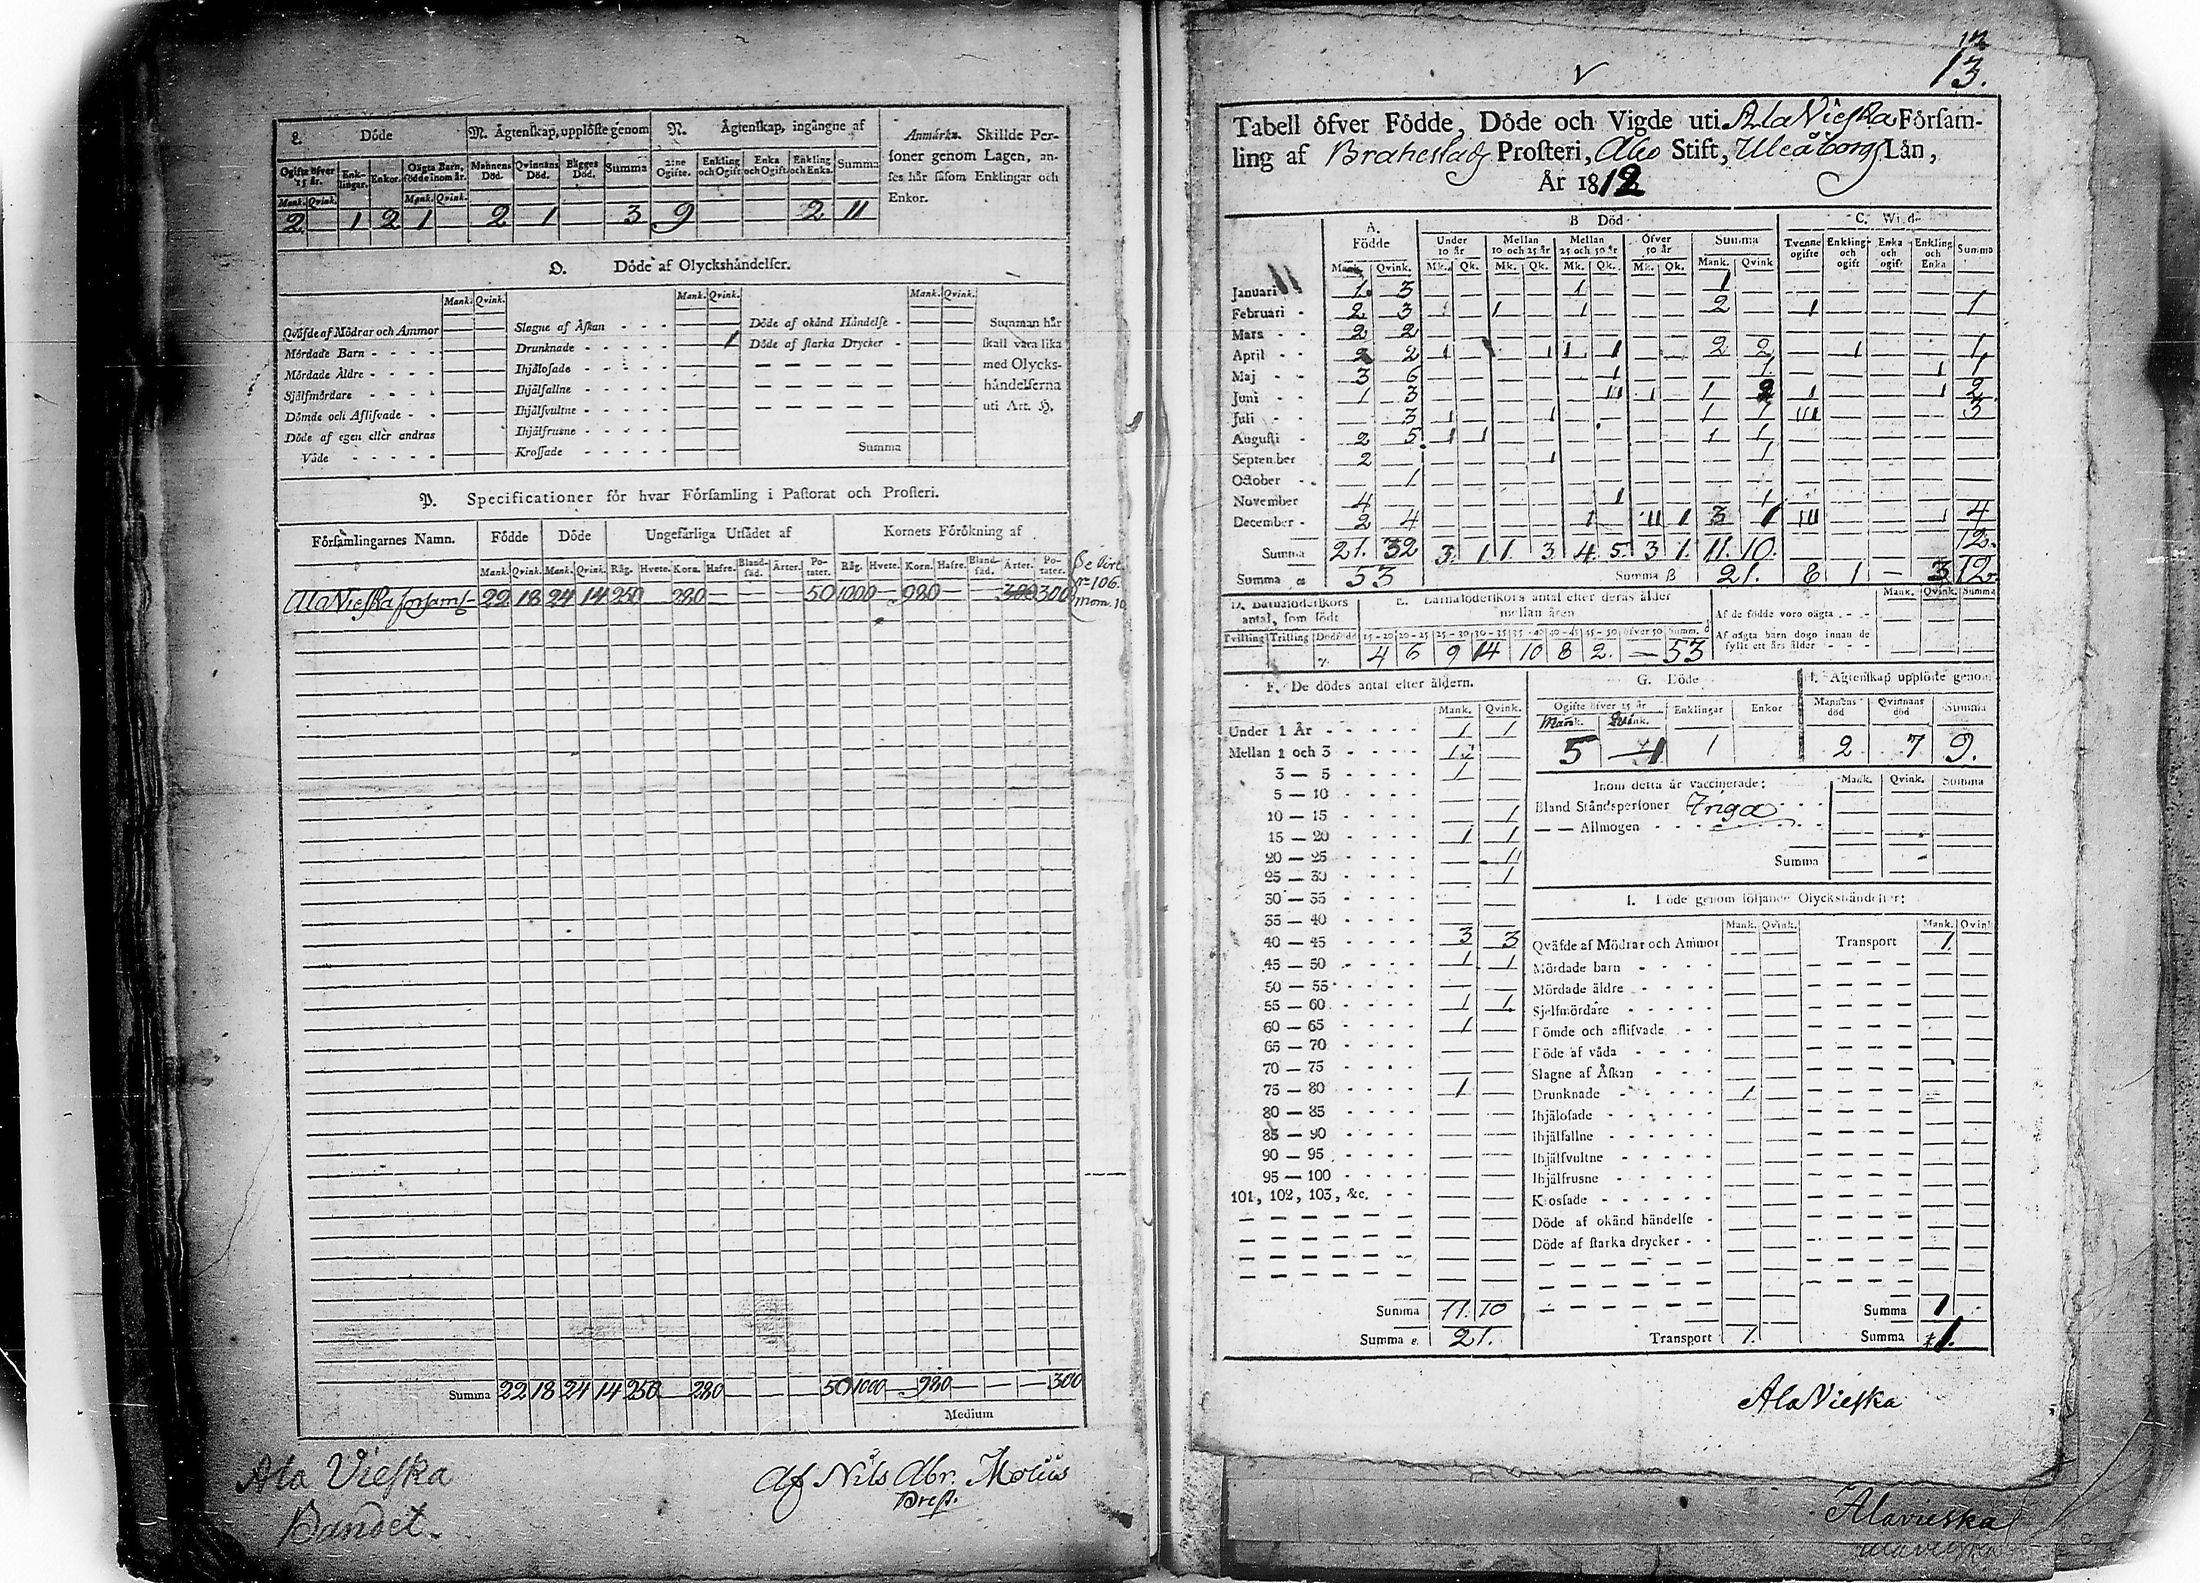 L. Döde
M. Ägtenskap, upplöste genom
N. Ägtenskap, ingångne af
Anmärkn. Skillde Per-
soner genom Lagen, an-
ses här såsom Enklingar och
Enkor.
Ogifte öfver 15 år. Enk-lingar. Enkor. Oägta Barn, födde inom år. Mannens Död. Qvinnans Död. Bägges Död. Summa 2:ne Ogifte. Enkling och Ogift Enka och Ogift Enkling och Enka. Summa
Mank. Qvink. Mank. Qvink.
2 — 1 2 1 — 2 1 3 9 2 11
O. Döde af Olyckshändelser.
Mank. Qvink. Mank. Qvink. Mank. Qvink.
Qväfde af Mödrar och Ammor
Mördade Barn - - - -
Mördade Äldre - - - -
Sjelfmördare - - - -
Dömde och Aflifvade - -
Döde af egen eller andras
Våde - - - - -
Slagne af Åskan - - - -
Drunknade - - - - 1
Ihjälosade - - - -
Ihjälfallne - - - -
Ihjälsvultne - - - -
Ihjälfrusne - - - -
Krossade - - - -
Döde af okänd Händelse -
Döde af starka Drycker -
Summa
Summan här
skall vara lika
med Olycks-
händelserna
uti Art. H.
P. Specificationer för hvar Församling i Pastorat och Prosteri.
Församlingarnes Namn. Födde Döde Ungefärliga Utsädet af Kornets Förökning af
Mank. Qvink. Mank. Qvink. Råg. Hvete. Korn. Hafre. Bland-säd. Ärter. Po-tater. Råg. Hvete. Korn. Hafre. Bland-säd. Ärter. Po-tater.
Ala Vieska församl 22 18 24 14 250 — 280 — — — 50 1000 — 980 — — 300 300
N:o 106.
mom. 10
Summa 22 18 24 14 250 — 280 — — — 50 1000 — 980 — — — 300
Medium
Ala Vieska
Bandet.
Af Nils Abr. Moliis
Prest.
12
13.
V
Tabell öfver Födde, Döde och Vigde uti Ala Vieska Försam-
ling af Brahestads Prosteri, Åbo Stift, Uleåborgs Län,
År 1812
A. Födde
B Död
C. Wigd
Under 10 år Mellan 10 och 25 år Mellan 25 och 50 år Öfver 50 år Summa Tvenne ogifte Enkling och ogift Enka och ogift Enkling och Enka Summa
Mank. Qvink. Mk. Qk. Mk. Qk. Mk. Qk. Mk. Qk. Mank. Qvink
Januari - 1 3 — — — — 1 — — — 1
Februari - 2 3 1 — 1 — 1 — — — 2 — 1 — — — 1
Mars - - 2 2
April - - 2 2 1 1 1 1 2 2 — 1 — — 1
Maj - - 3 6 1 1 — — — 1 1
Juni - - 1 3 11 1 1 2 1 — — — 2
Juli - - — 3 1 1 1 1 111 — — — 3
Augusti - 2 5 1 1 1 1
September - 2 — 1 1
October - — 1
November 4 — 1 1
December - 2 4 1 11 1 3 1 111 — — 1 4
Summa 21. 32 3. 1 1. 3 4 5. 3 1. 11. 10. 12.
Summa a 53 Summa B 21. 8 1 — 3 12
D. Barnaföderskors antal, som födt
Tvilling Trilling Dödfödde
E. Barnaföderskors antal efter deras ålder
mellan åren
15—20 20—25 25—30 30—35 35—40 40—45 45—50 öfver 50 Summ. d
4 6 9 14 10 8 2. — 53
Mank. Qvink. Summa
Af de födde voro oägta - -
Af oägta barn dogo innan de
fyllt ett års ålder - - -
F. De dödes antal efter åldern.
Mank. Qvink.
Under 1 År - - - - - 1 1
Mellan 1 och 3 - - - -
3 — 5 - - - - 1
5 — 10 - - - -
10 — 15 - - - - — 1
15 — 20 - - - - 1 1
20 — 25 - - - - — 11
25 — 30 - - - - — 1
30 — 35 - - - -
35 — 40 - - - -
40 — 45 - - - - 3 3
45 — 50 - - - - 1 1
50 — 55 - - - -
55 — 60 - - - - 1 1
60 — 65 - - - - 1
65 — 70 - - - -
70 — 75 - - - -
75 — 80 - - - - 1
80 — 85 - - - -
85 — 90 - - - -
90 — 95 - - - -
95 — 100 - - - -
101, 102, 103, &c. - -
Summa 11. 10
Summa e. 21.
G. Döde
Ogifte öfver 15 år Enklingar Enkor
Mank. Qvink.
5 1 1
H. Ägtenskap upplöste genom
Mannens död Qvinnans död Summa
2 7 9.
Inom detta år vaccinerade: Mank. Qvink. Summa
Bland Ståndspersoner Inga - - -
— — Allmogen - - - -
Summa
I. Döde genom följande Olyckshändelser:
Mank. Qvink. Mank. Qvink
Qväfde af Mödrar och Ammor Transport 1.
Mördade barn - - - -
Mördade äldre - - - -
Sjelfmördare - - - -
Dömde och aflifvade - -
Döde af våda - - - -
Slagne af Åskan - - - -
Drunknade - - - - - 1
Ihjälosade - - - -
Ihjälfallne - - - -
Ihjälsvultne - - - -
Ihjälfrusne - - - -
Krossade - - - -
Döde af okänd händelse -
Döde af starka drycker - -
Summa 1
Transport 1. Summa 1.
Ala Vieska
Alavieska
Alavieska